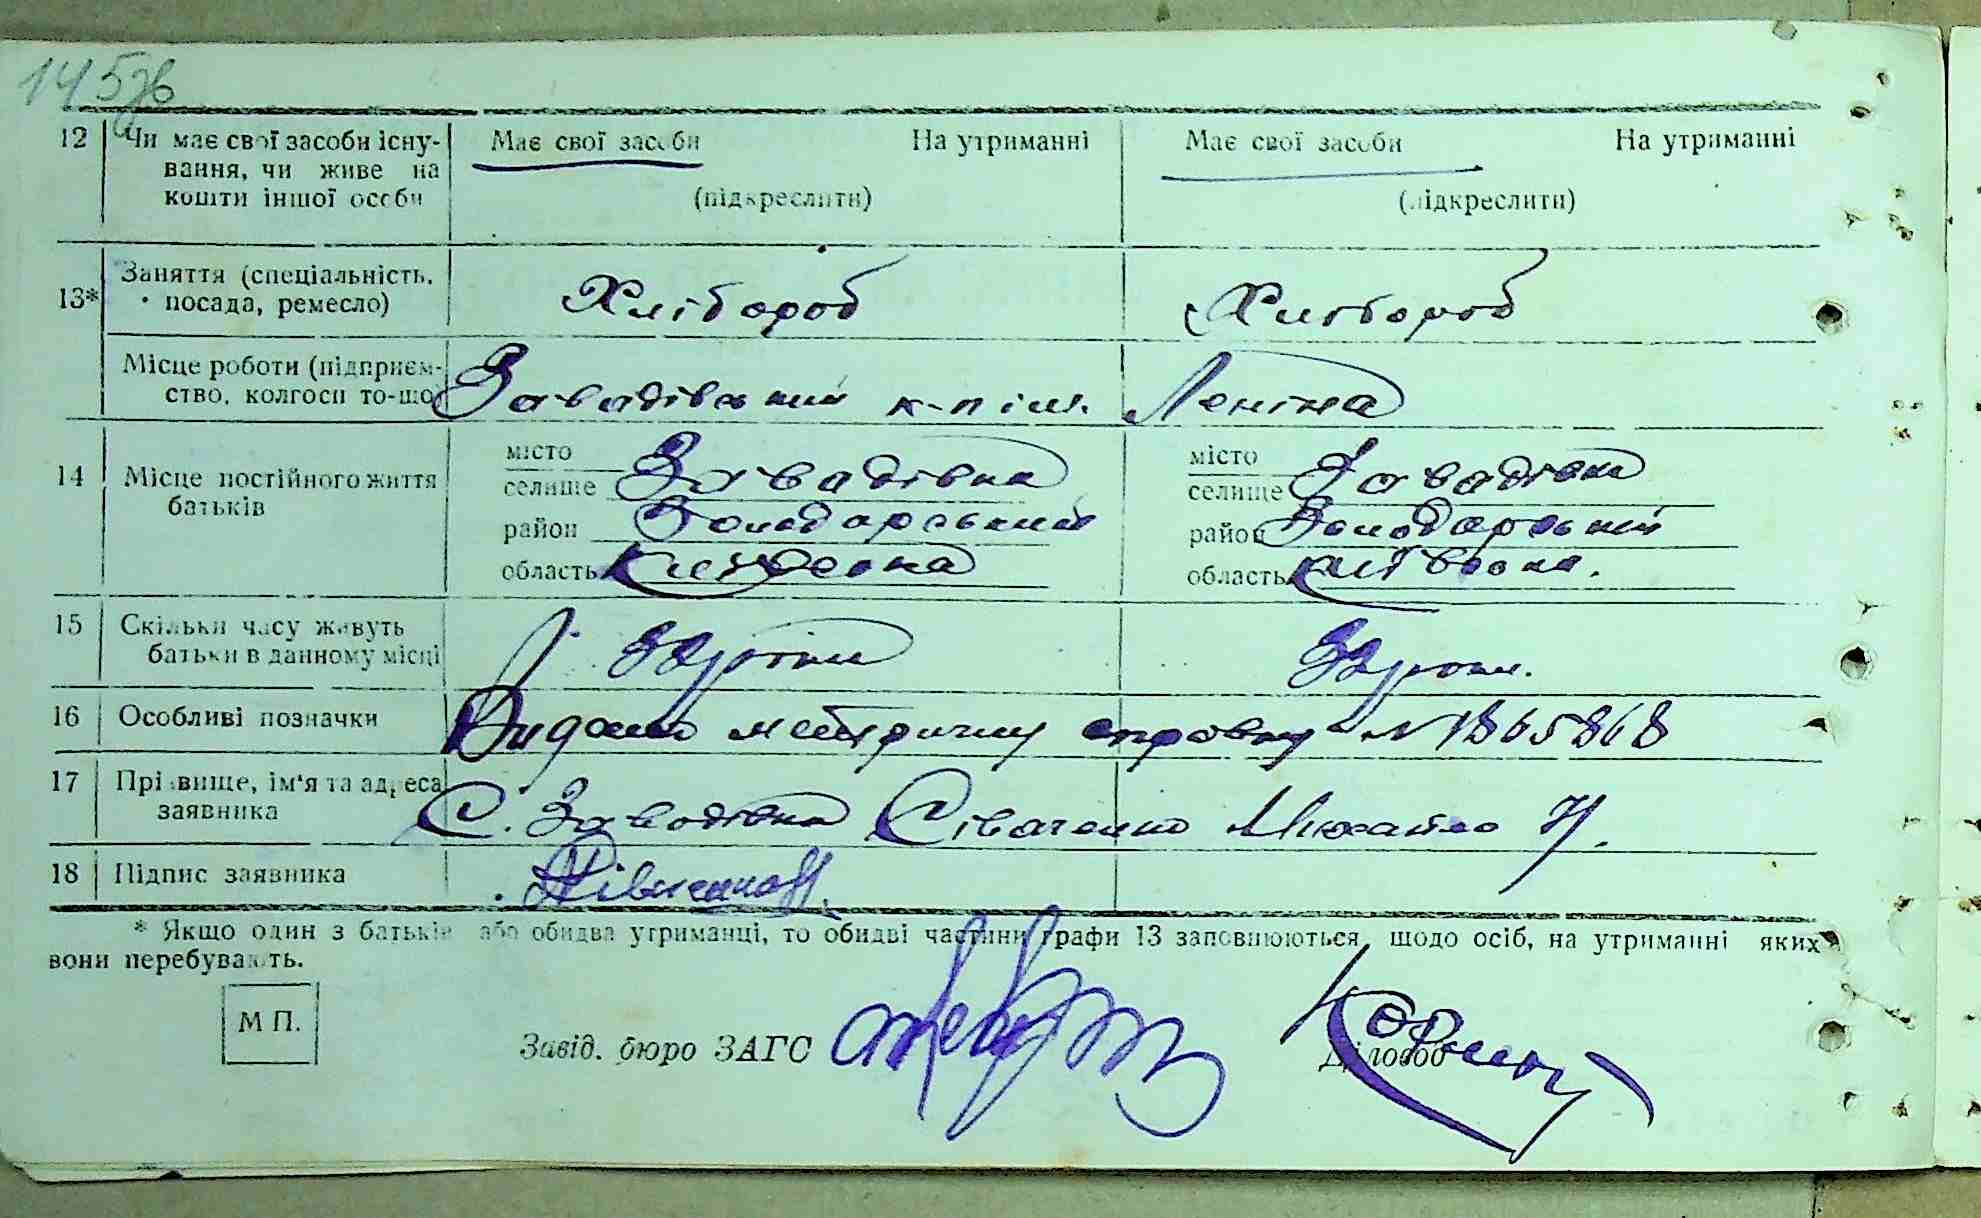 145зв
12 Чи має свої засоби існу- Має свої засоби На утриманні Має свої засоби На утриманні
вання, чи живе на
кошти іншої особи (підкреслити) (підкреслити)
Заняття (спеціальність,
13* посада, ремесло) Хлібороб Хлібороб
Місце роботи (підприєм-
ство, колгосп то-що) Завадівський к-п ім. Леніна
14 Місце постійного життя місто місто
батьків селище Завадівка селище Завадівка
район Володарський район Володарський
область Київська область Київська.
15 Скільки часу живуть
батьки в данному місці роки роки.
16 Особливі позначки Видано метричну справку N 1865868
17 Прізвище, ім'я та адреса
заявника С. Завадівка Сіваченко Михайло
18 Підпис заявника
* Якщо один з батьків або обидва утриманці, то обидві частини графи 13 заповнюються щодо осіб, на утриманні яких
вони перебувають.
М П.
Завід. бюро ЗАГС Діловод